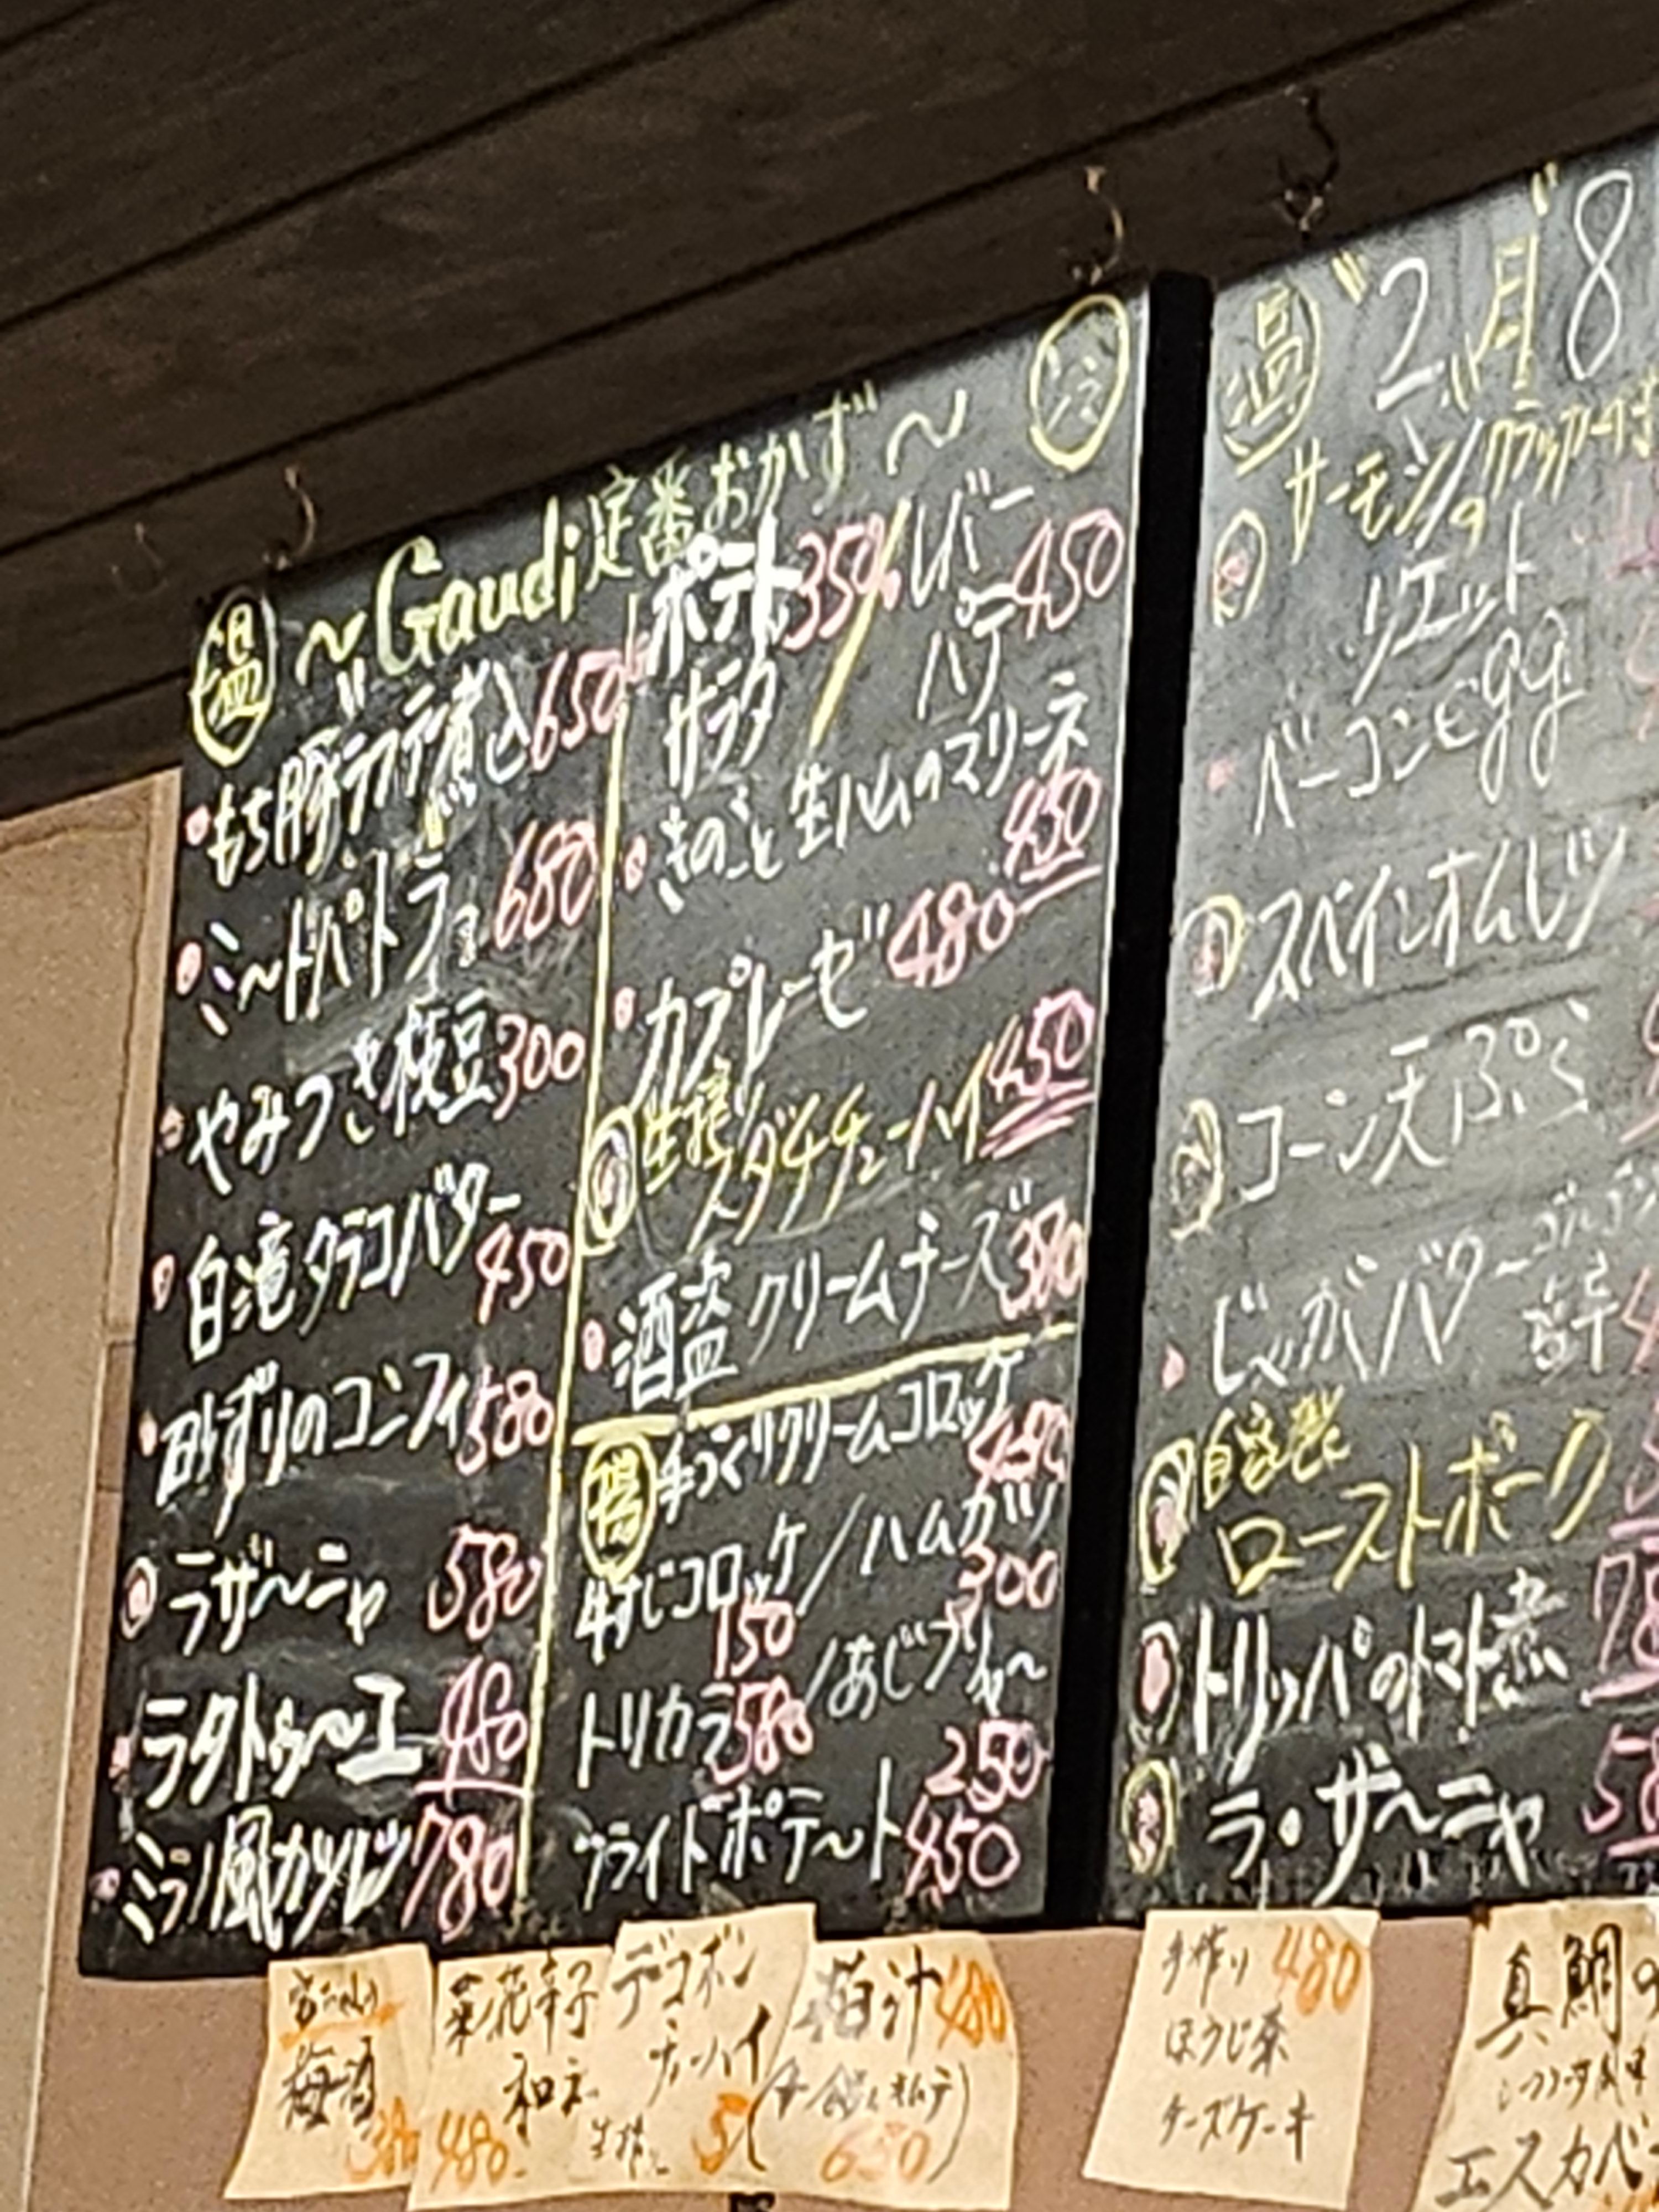 温 ~Gaudi定番おかず~ 冷
もち豚ラフテ煮込 650
ミートパイトラフィ 680
やみつき枝豆 300
白滝タラコバター 450
砂ずりのコンフィ 580
ラザ~ニャ 580
ラタトゥ~エ 480
ミラノ風カツレツ 780
ポテトサラダ 350 / レバーパテ 450
きのこと生ハムのマリーネ 450
カプレーゼ 480
生搾りスダチチューハイ 450
酒盗クリームチーズ 380
揚 手づくりクリームコロッケ 480
牛すじコロッケ 150 / ハムカツ 300
トリカラ 580 / あじフリャ~ 250
フライドポテ~ト 450
温 "2月8
サーモン クラッカー付
の
リエット
ベーコンegg
スペインオムレツ
コーン天ぷら
じゃがバター
塩辛
自家製
ローストポーク
トリッパのトマト煮
ラ・ザ~ニャ
梅酒
380
菜花辛子
和え
480
デコポン
チューハイ
生搾り
汁 480
650
手作り 480
ほうじ茶
チーズケーキ
真鯛の
エスカベ